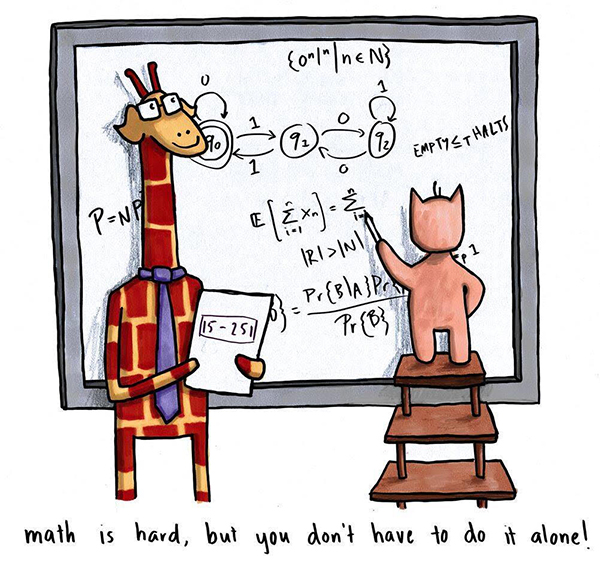 {0ⁿ1ⁿ | n ∈ N}
0
1
q0
1
q1
0
q2
1
0
EMPTY ≤T HALTS
P=NP
𝔼[∑ᵢ₌₁ⁿ Xn] = ∑ᵢ₌ⁿ
|R| > |N|
p 1
} = Pr{B|A}Pr{ / Pr{B}
15-251
math is hard, but you don't have to do it alone!